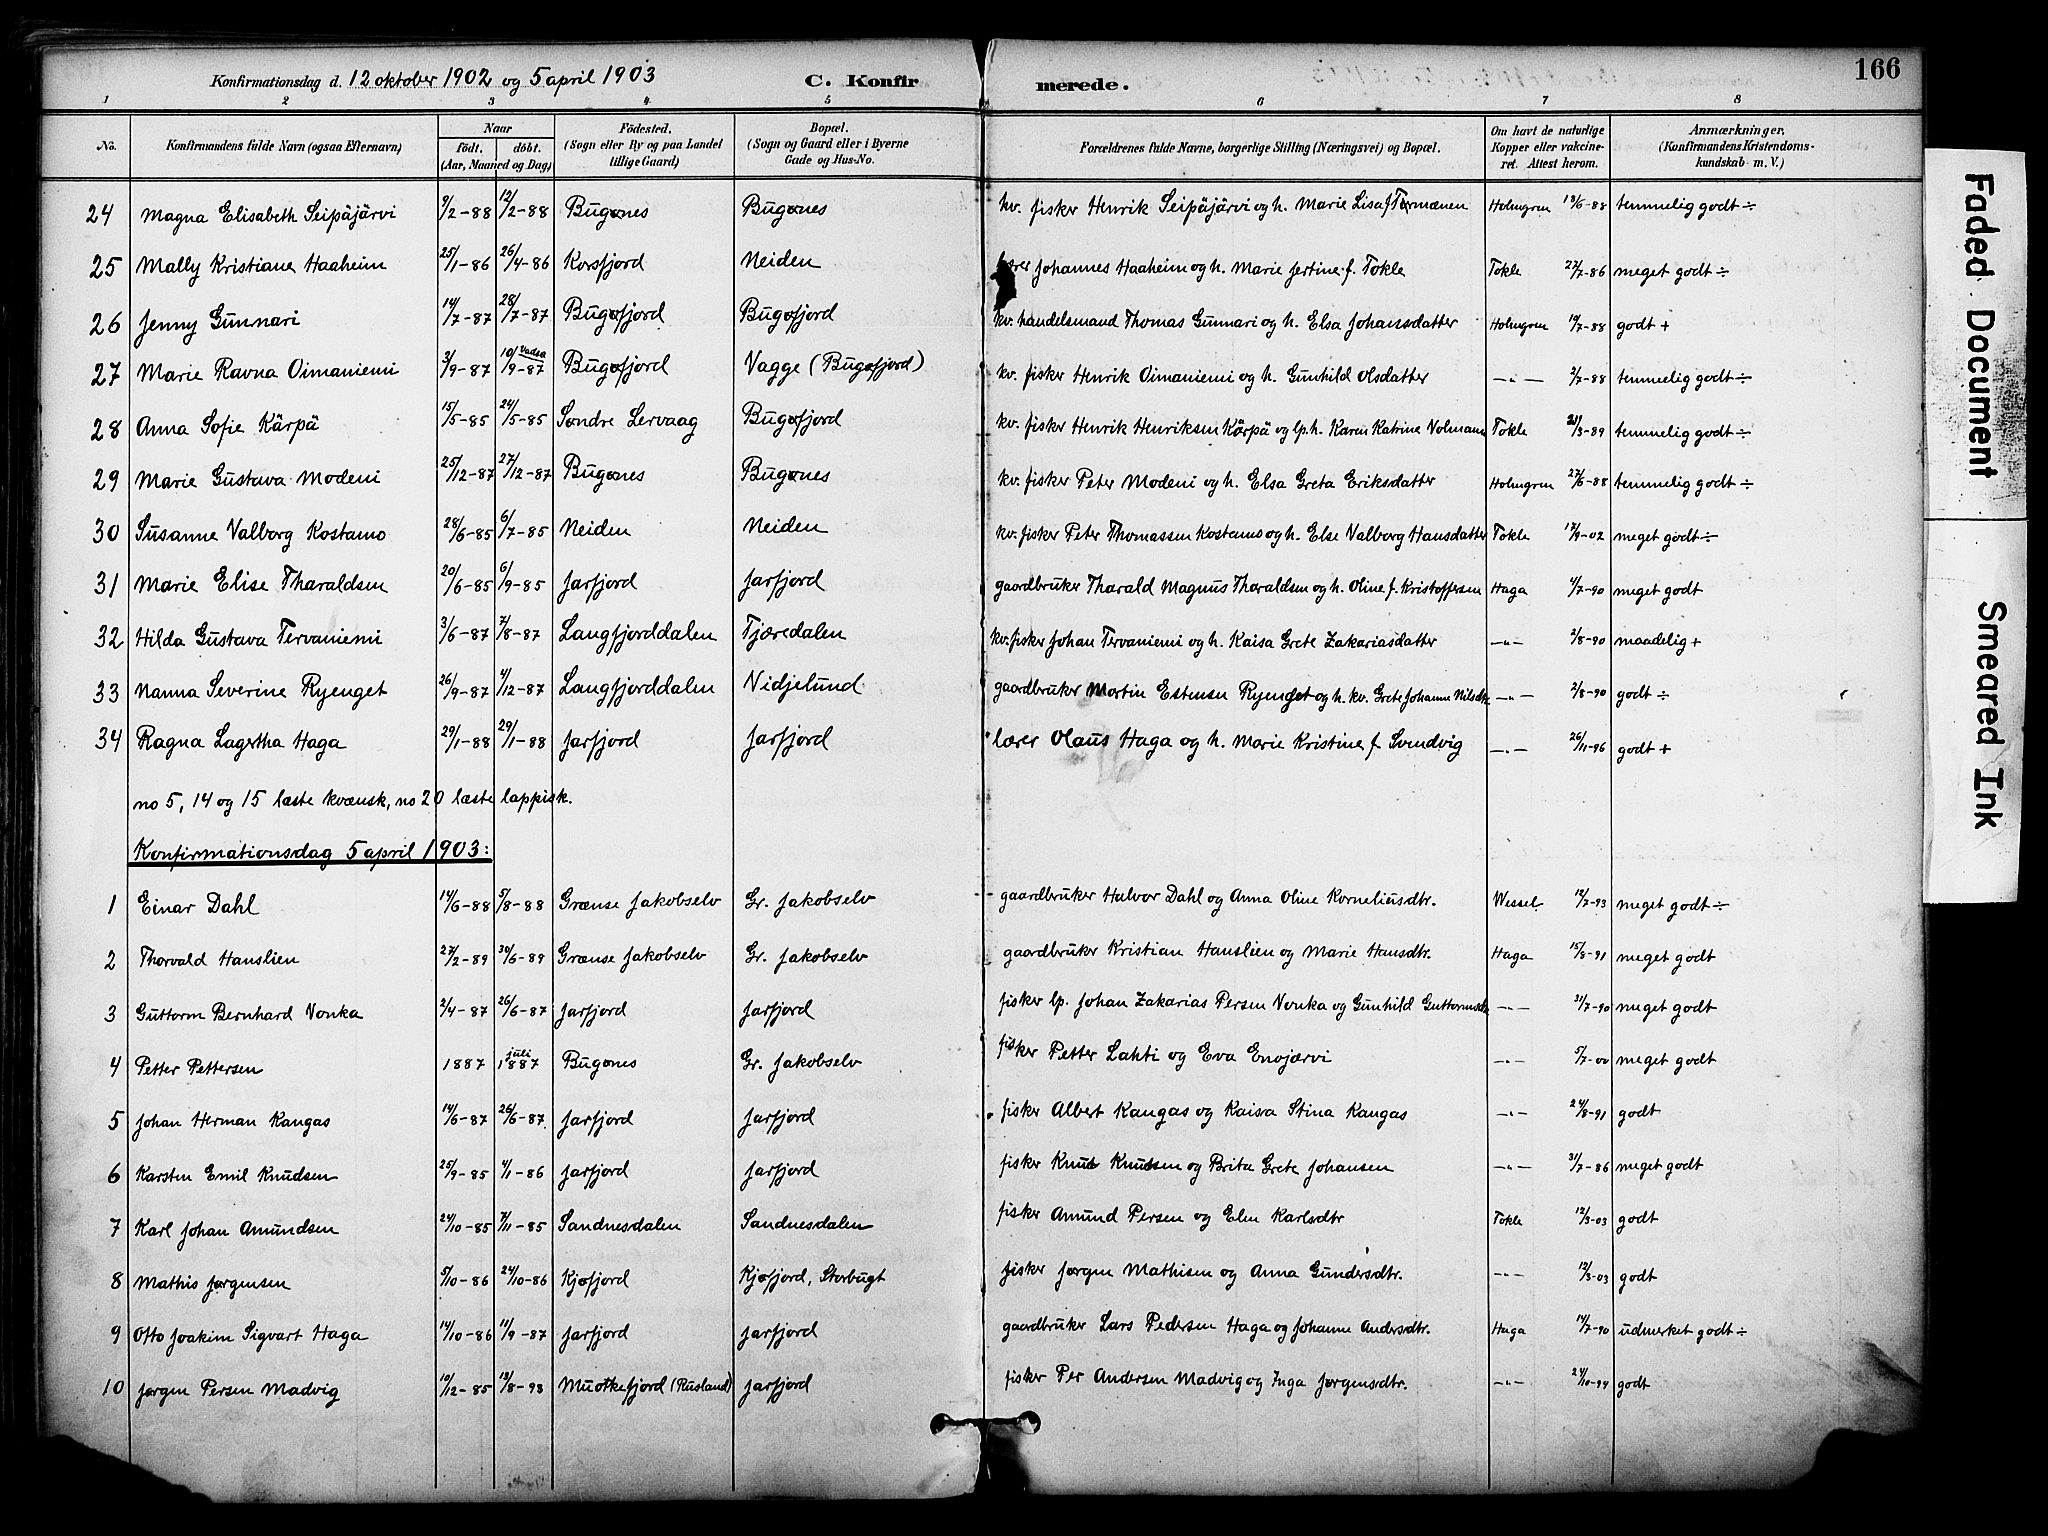 Konfirmationsdag d. 12 oktober 1902 og 5 april 1903 C. Konfirmerede. 166
1 2 3 4 5 6 7 8
No. Konfirmandens fulde Navn (ogsaa Efternavn) Naar födt. döbt. (Aar, Maaned og Dag) Födested. (Sogn eller By og paa Landet tillige Gaard) Bopæl. (Sogn og Gaard eller i Byerne Gade og Hus-No. Forældrenes fulde Navne, borgerlige Stilling (Næringsvei) og Bopæl. Om havt de naturlige Kopper eller vakcineret. Attest herom. Anmærkninger. (Konfirmandens Kristendomskundskab m. V.)
24 Magna Elisabeth Seipäjärvi 9/2-88 12/2-88 Bugønes Bugønes kv. fisker Henrik Seipäjärvi og h. Marie Lisa f Tormænen Holmgren 13/6-88 temmelig godt ÷
25 Mally Kristiane Haaheim 25/1-86 26/4-86 Korsfjord Neiden lærer Johannes Haaheim og h. Marie Jertine f. Tokle Tokle 27/7-86 meget godt ÷
26 Jenny Gunnari 14/7-87 28/7-87 Bugøfjord Bugøfjord kv. handelsmand Thomas Gunnari og h. Elsa Johansdatter Holmgren 19/7-88 godt +
27 Marie Ravna Oimaniemi 3/9-87 10/9-87 Vadsø Bugøfjord Vagge (Bugøfjord) kv. fisker Henrik Oimaniemi og h. Gunhild Olsdatter —"— 2/7-88 temmelig godt ÷
28 Anna Sofie Kärpä 15/5-85 24/5-85 Søndre Lervaag Bugøfjord kv. fisker Henrik Henriksen Kärpä og lp. h. Karen Katrine Volmann Tokle 21/3-89 temmelig godt ÷
29 Marie Gustava Modeni 25/12-87 27/12-87 Bugønes Bugønes kv. fisker Peter Modeni og h. Elsa Greta Eriksdatter Holmgren 27/6-88 temmelig godt ÷
30 Susanne Valborg Kostamo 28/6-85 6/7-85 Neiden Neiden kv. fisker Peter Thomassen Kostamo og h. Else Valborg Hansdatter Tokle 17/9-02 meget godt ÷
31 Marie Elise Tharaldsen 20/6-85 6/9-85 Jarfjord Jarfjord gaardbruker Tharald Magnus Tharaldsen og h. Oline f. Kristoffersen Haga 4/7-90 meget godt
32 Hilda Gustava Tervaniemi 3/6-87 7/8-87 Langfjorddalen Tjæredalen kv. fisker Johan Tervaniemi og h. Kaisa Grete Zakariasdatter —"— 2/8-90 maadelig +
33 Nanna Severine Ryenget 26/9-87 4/12-87 Langfjorddalen Nidjelund gaardbruker Martin Estensen Ryenget og h. kv. Grete Johanne Nilsdtr. —"— 2/8-90 godt ÷
34 Ragna Lagertha Haga 29/1-88 29/1-88 Jarfjord Jarfjord lærer Olaus Haga og h. Marie Kristine f. Svendvig —"— 26/11-96 godt +
no 5, 14 og 15 læste kvænsk, no 20 læste lappisk.
Konfirmationsdag 5 april 1903:
1 Einar Dahl 14/6-88 5/8-88 Grænse Jakobselv Gr. Jakobselv gaardbruker Halvor Dahl og Anna Oline Korneliusdtr. Wessel 12/7-93 meget godt ÷
2 Thorvald Hanslien 27/2-89 30/6-89 Grænse Jakobselv Gr. Jakobselv gaardbruker Kristian Hanslien og Marie Hansdtr. Haga 15/8-91 meget godt
3 Guttorm Bernhard Vonka 2/4-87 26/6-87 Jarfjord Jarfjord fisker lp. Johan Zakarias Persen Vonka og Gunhild Guttormsdtr —"— 31/7-90 meget godt
4 Petter Pettersen 1887 juli 1887 Bugønes Gr. Jakobselv fisker Petter Lahti og Eva Enojærvi —"— 5/7-00 meget godt
5 Johan Herman Kangas 14/6-87 26/6-87 Jarfjord Jarfjord fisker Albert Kangas og Kaisa Stina Kangas —"— 24/8-91 godt
6 Karsten Emil Knudsen 25/9-85 4/1-86 Jarfjord Jarfjord fisker Knut Knutsen og Brita Grete Johansen —"— 31/7-86 meget godt
7 Karl Johan Amundsen 24/10-85 7/11-85 Sandnesdalen Sandnesdalen fisker Amund Persen og Elen Karlsdtr Tokle 12/3-03 godt
8 Mathis Jørgensen 5/10-86 24/10-86 Kjøfjord Kjøfjord, Storbugt fisker Jørgen Mathisen og Anna Gundersdtr. —"— 12/3-03 godt
9 Otto Joakim Sigvart Haga 14/10-86 11/9-87 Jarfjord Jarfjord gaardbruker Lars Pedersen Haga og Johanne Andersdtr. Haga 14/7-90 udmerket godt ÷
10 Jørgen Persen Madvig 10/12-85 13/8-93 Muotkefjord (Rusland) Jarfjord fisker Per Andersen Madvig og Inga Jørgensdtr. —"— 24/10-94 godt
Faded Document
Smeared Ink